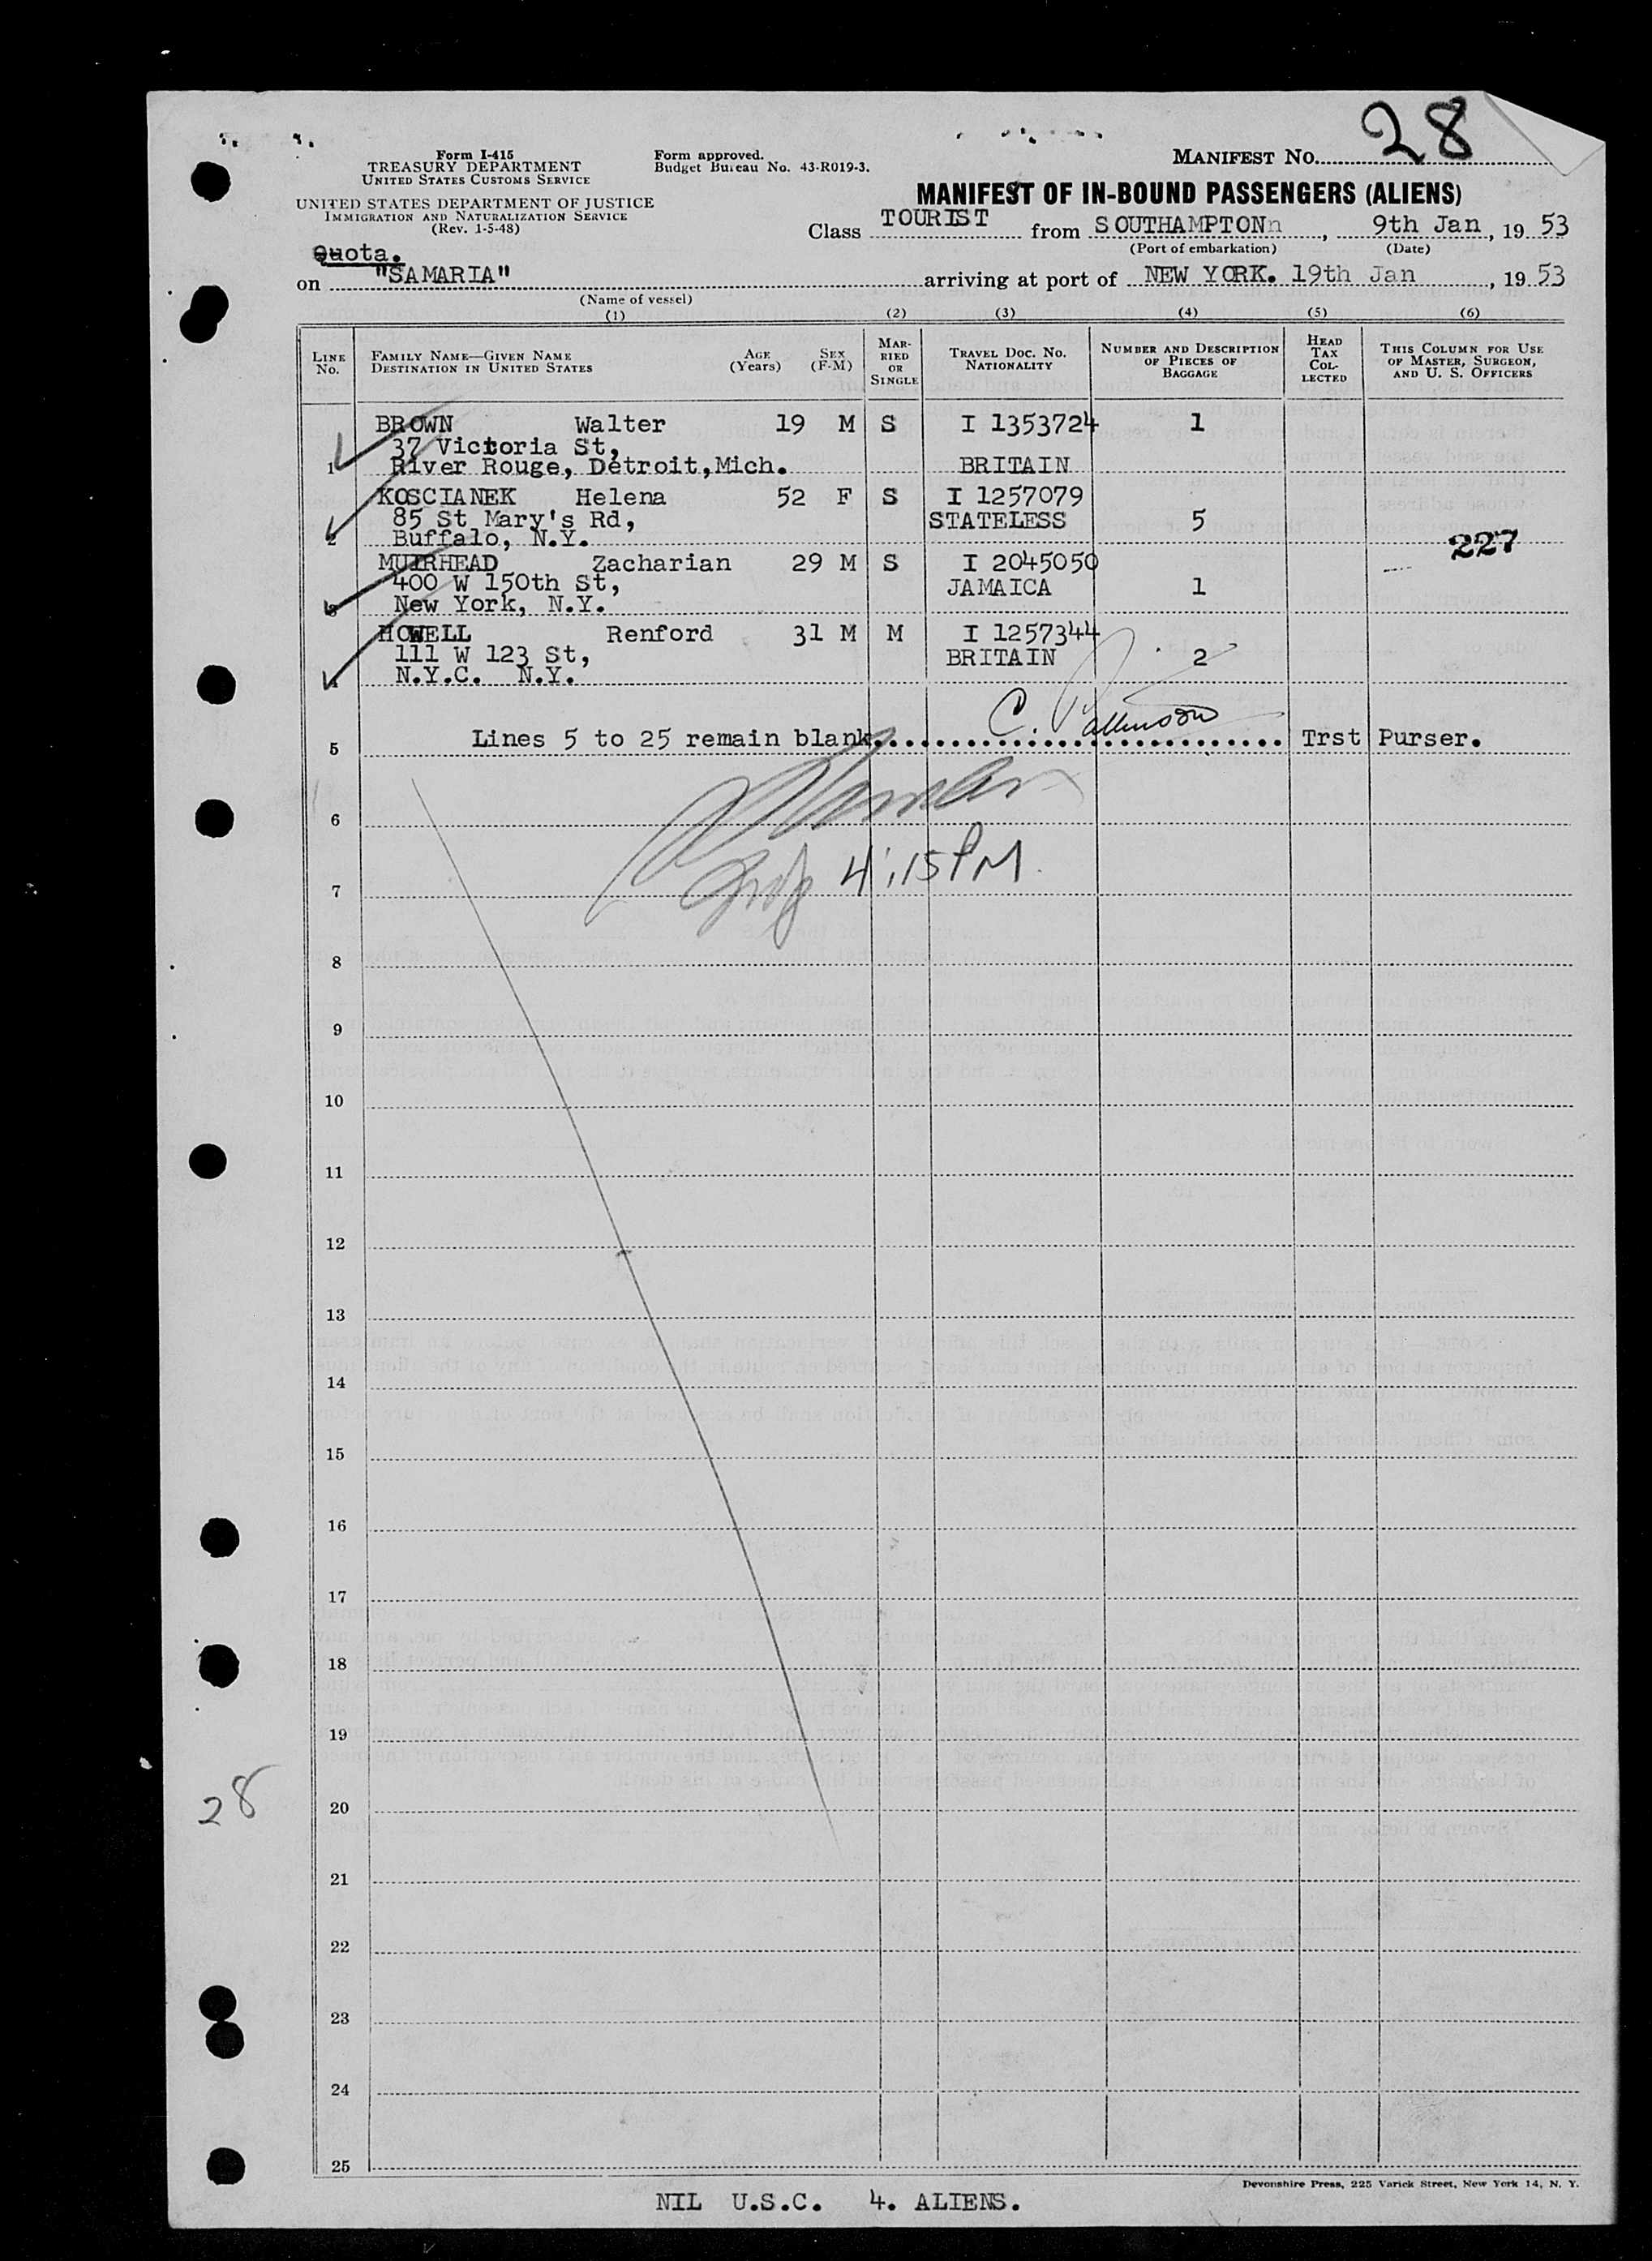 28
Form I-415
TREASURY DEPARTMENT
UNITED STATES CUSTOMS SERVICE
UNITED STATES DEPARTMENT OF JUSTICE
IMMIGRATION AND NATURALIZATION SERVICE
(Rev. 1-5-48)
Form approved.
Budget Bureau No. 43-R019-3.
MANIFEST No.
MANIFEST OF IN-BOUND PASSENGERS (ALIENS)
Class TOURIST from SOUTHAMPTONn, 9th Jan, 19 53
(Port of embarkation) (Date)
Quota.
on "SAMARIA" arriving at port of NEW YORK. 19th Jan, 19 53
(Name of vessel)
(1) (2) (3) (4) (5) (6)
LINE No.
FAMILY NAME—GIVEN NAME
DESTINATION IN UNITED STATES
AGE (Years)
SEX (F-M)
MARRIED OR SINGLE
TRAVEL DOC. NO.
NATIONALITY
NUMBER AND DESCRIPTION OF PIECES OF BAGGAGE
HEAD TAX COLLECTED
THIS COLUMN FOR USE OF MASTER, SURGEON, AND U. S. OFFICERS
BROWN Walter 19 M S I 1353724 1
37 Victoria St,
1 River Rouge, Detroit,Mich. BRITAIN
KOSCIANEK Helena 52 F S I 1257079
85 St Mary's Rd, STATELESS 5
2 Buffalo, N.Y.
227
MUIRHEAD Zacharian 29 M S I 2045050
400 W 150th St, JAMAICA 1
3 New York, N.Y.
HOWELL Renford 31 M M I 1257344
111 W 123 St, BRITAIN 2
4 N.Y.C. N.Y.
5 Lines 5 to 25 remain blank. C. Trst Purser.
6
4:15 PM
7
8
9
10
11
12
13
14
15
16
17
18
19
28
20
21
22
23
24
25
Devonshire Press, 225 Varick Street, New York 14, N. Y.
NIL U.S.C. 4. ALIENS.